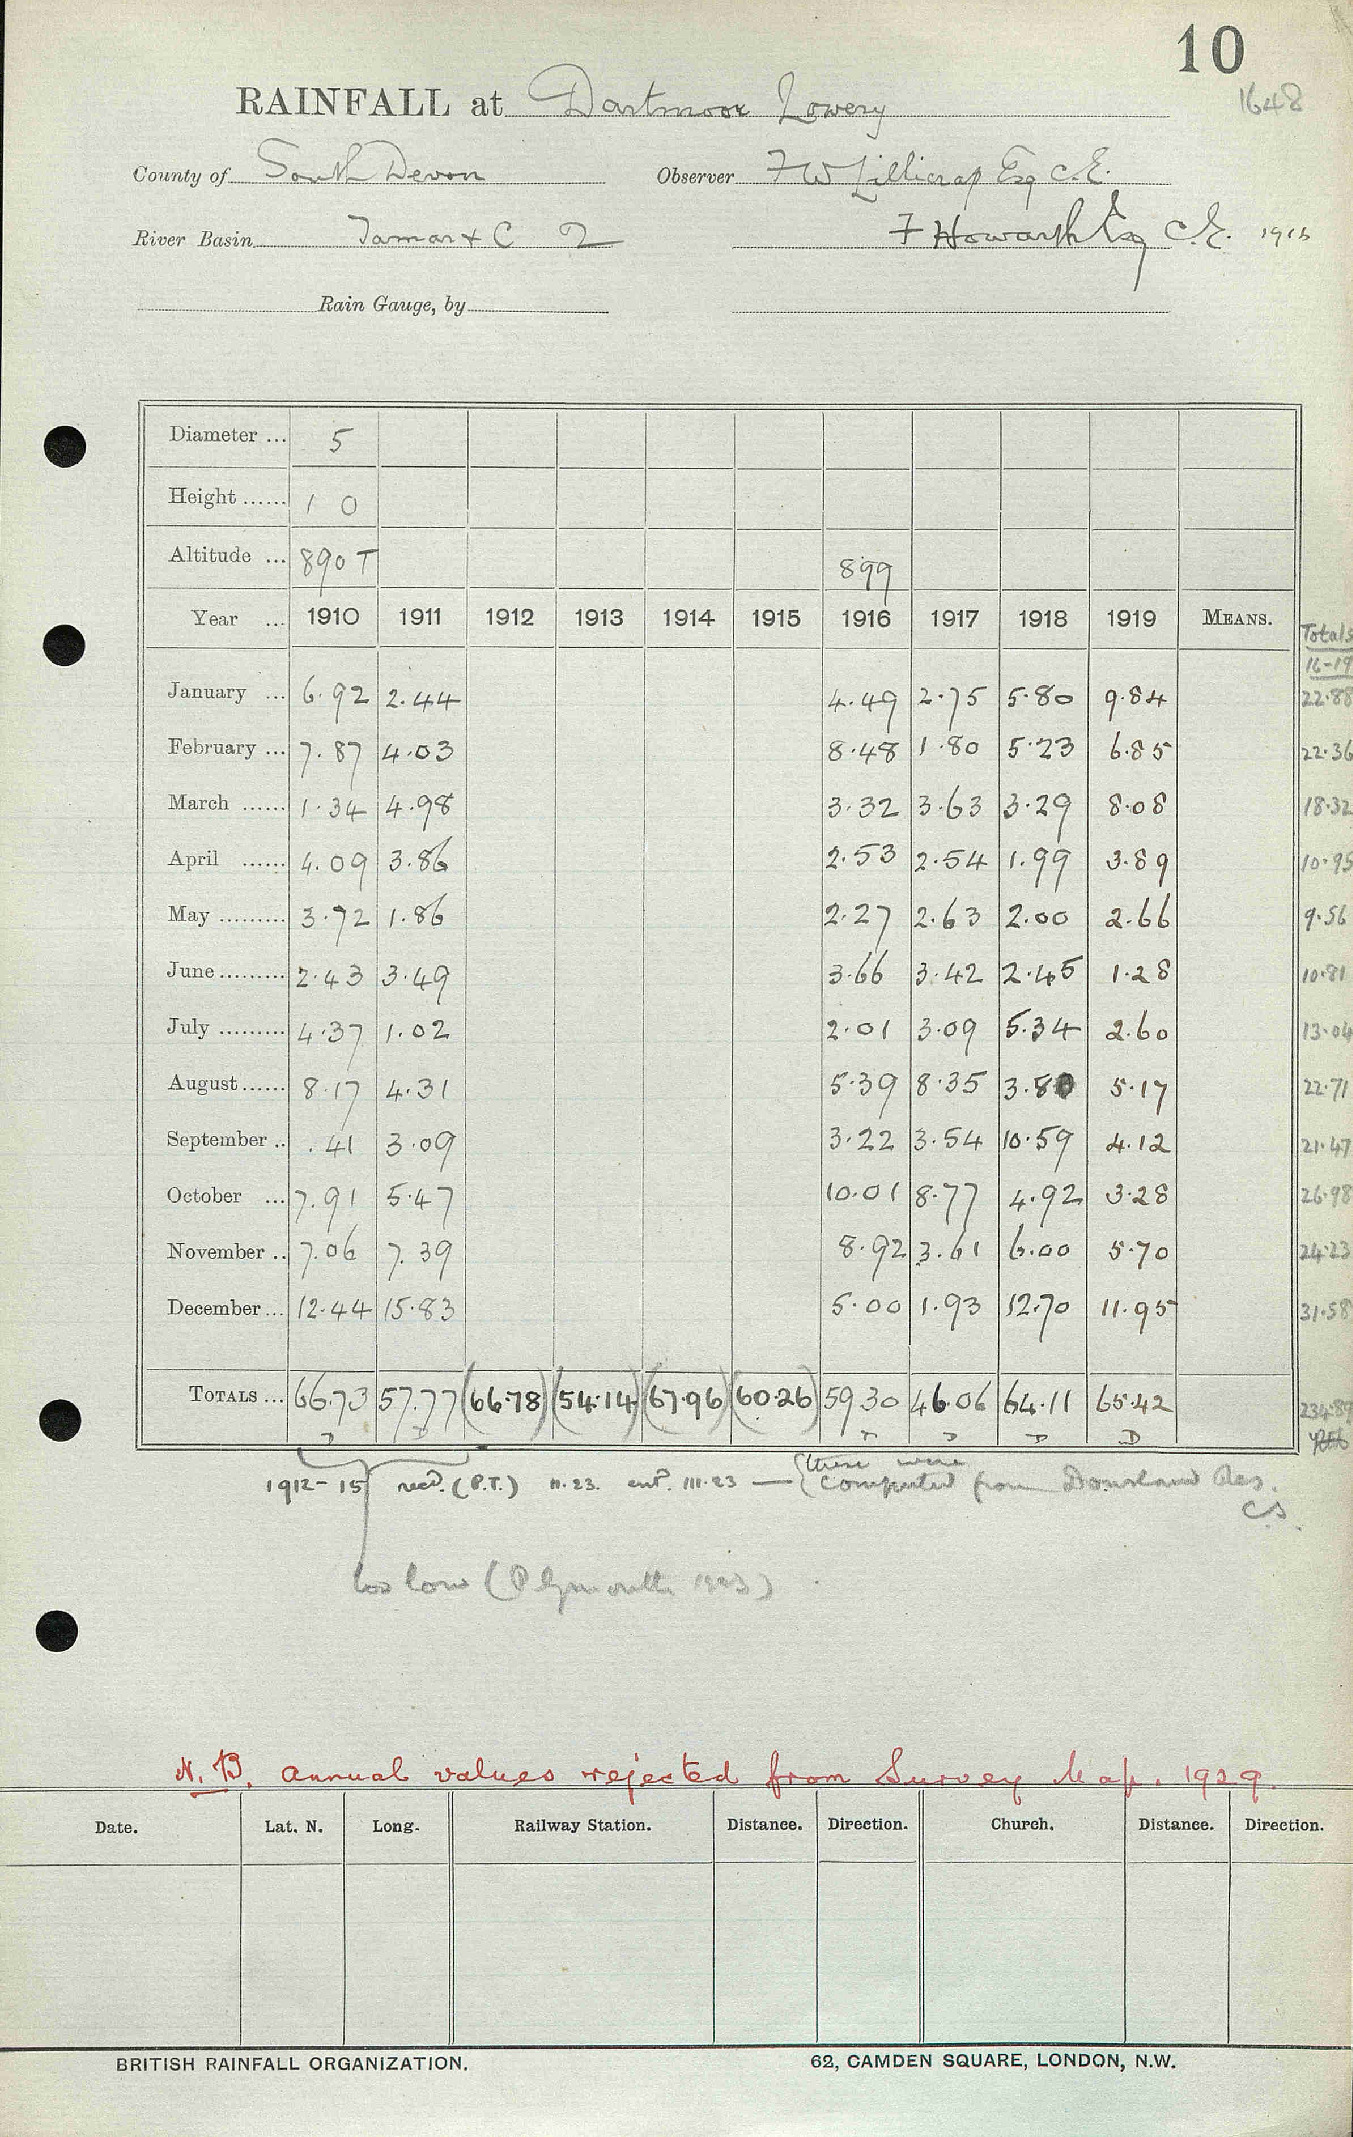 10
1648
RAINFALL at Dartmoor Lowery
County of South Devon Observer F W Lillicrap Esq C.E.
River Basin Tamar & C 2 F Howarth Esq C.E.
Rain Gauge, by
Diameter ... 5
Height ...... 1 0
Altitude ... 890 T 899
Year ... 1910 1911 1912 1913 1914 1915 1916 1917 1918 1919 MEANS. Totals
16-19
January ... 6.92 2.44 4.49 2.75 5.80 9.84 22.88
February ... 7.87 4.03 8.48 1.80 5.23 6.85 22.36
March ...... 1.34 4.98 3.32 3.63 3.29 8.08 18.32
April ...... 4.09 3.86 2.53 2.54 1.99 3.89 10.95
May ......... 3.72 1.86 2.27 2.63 2.00 2.66 9.56
June ......... 2.43 3.49 3.66 3.42 2.45 1.28 10.81
July ......... 4.37 1.02 2.01 3.09 5.34 2.60 13.04
August ...... 8.17 4.31 5.39 8.35 3.80 5.17 22.71
September .. .41 3.09 3.22 3.54 10.59 4.12 21.47
October ... 7.91 5.47 10.01 8.77 4.92 3.28 26.98
November .. 7.06 7.39 8.92 3.61 6.00 5.70 24.23
December ... 12.44 15.83 5.00 1.93 12.70 11.95 31.58
TOTALS ... 66.73 57.77 (66.78) (54.14) (67.96) (60.26) 59.30 46.06 64.11 65.42 234.89
these were
1912-15 recd. (P.T.) II.23. entd. III.23 — computed from Dousland Res.
C.S.
too low (Plymouth 1923)
N.B. annual values rejected from Survey Map. 1929.
Date. Lat. N. Long. Railway Station. Distance. Direction. Church. Distance. Direction.
BRITISH RAINFALL ORGANIZATION. 62, CAMDEN SQUARE, LONDON, N.W.